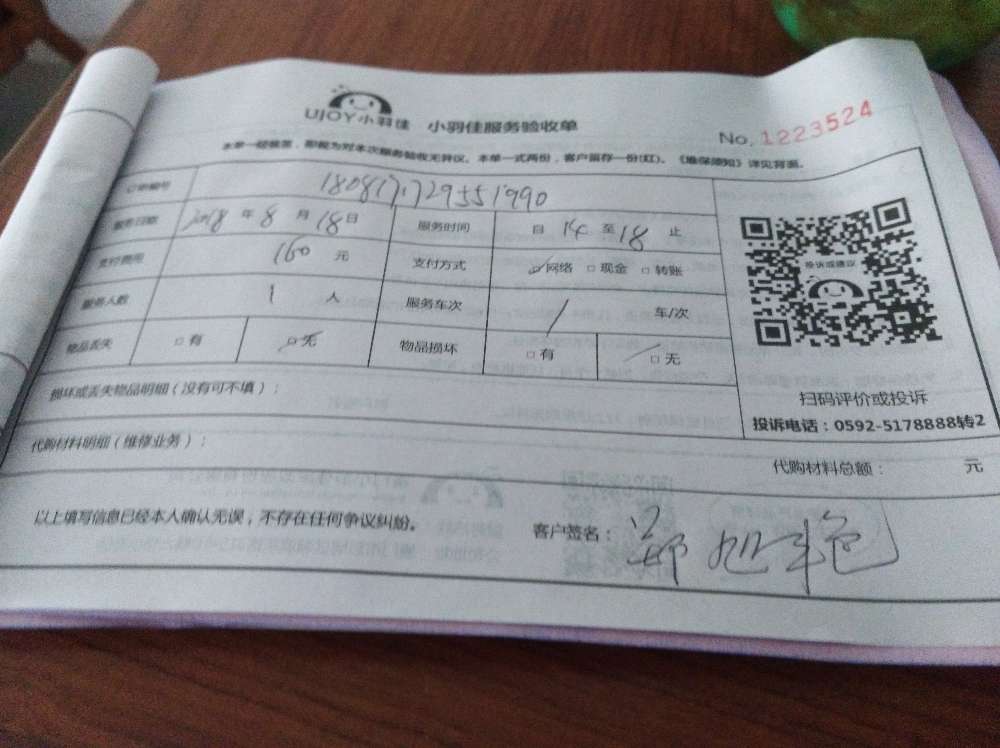 UJOY小羽佳 小羽佳服务验收单
No. 1223524
本单一经签署，即视为对本次服务验收无异议。本单一式两份，客户留存一份(红)。《维保须知》详见背面。
订单编号 1808171729551990
服务日期 2018 年 8 月 18 日 服务时间 自 14 至 18 止
支付费用 160 元 支付方式 网络 现金 转账
服务人数 1 人 服务车次 / 车/次
物品丢失 有 无 物品损坏 有 无
投诉或建议
扫码评价或投诉
投诉电话：0592-5178888转2
损坏或丢失物品明细（没有可不填）：
代购材料明细（维修业务）：
代购材料总额： 元
以上填写信息已经本人确认无误，不存在任何争议纠纷。
客户签名： 郑旭艳